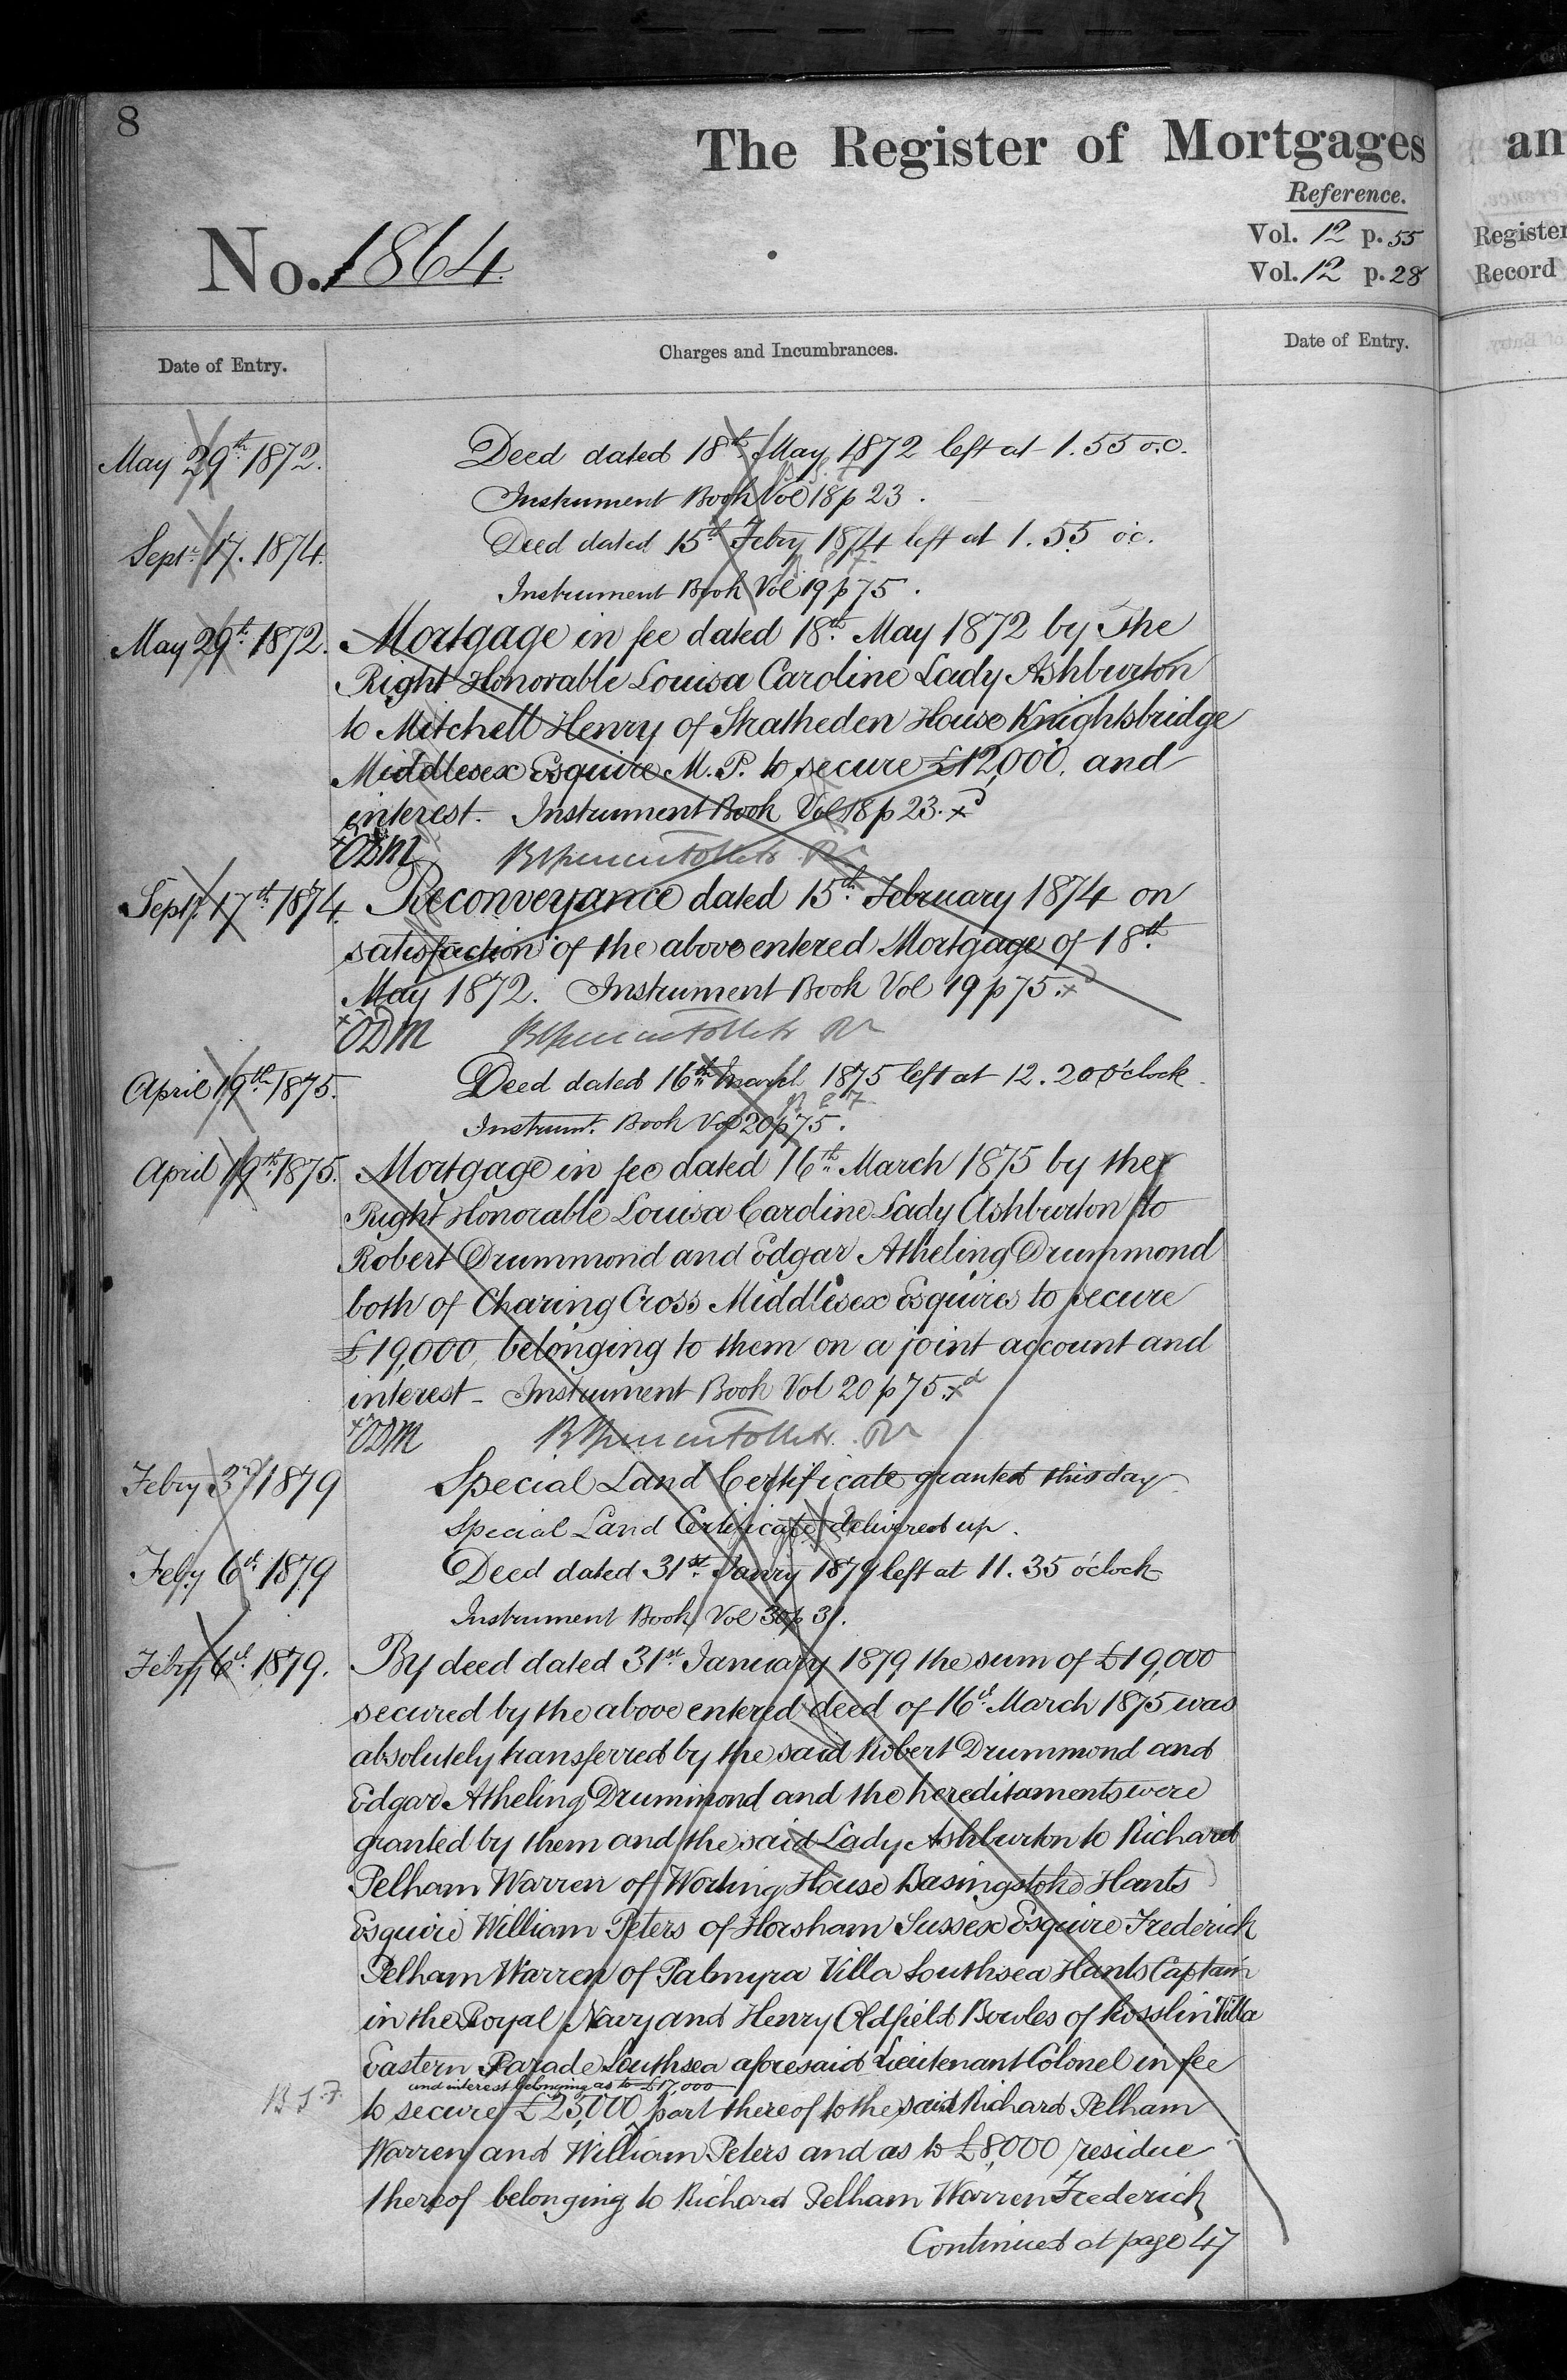 8
The Register of Mortgages
an
Reference.
Vol. 12 p. 55
Register
No. 1864.
Vol. 12 p. 28
Record
Date of Entry.
Charges and Incumbrances.
Date of Entry.
May 29th 1872. Deed dated 18th May 1872 left at 1.55 o.c.
Instrument Book Vol 18 p 23.
Sept. 17. 1874. Deed dated 15th Febry 1874 left at 1.55 o.c.
Instrument Book Vol 19 p 75.
May 29th 1872. Mortgage in fee dated 18th May 1872 by The
Right Honorable Louisa Caroline Lady Ashburton
to Mitchell Henry of Stratheden House Knightsbridge
Middlesex Esquire M.P. to secure £12,000. and
interest. Instrument Book Vol 18 p 23. x
x ODM
Sept. 17th 1874. Reconveyance dated 15th February 1874 on
satisfaction of the above entered Mortgage of 18th
May 1872. Instrument Book Vol 19 p 75. x
x ODM
April 19th 1875. Deed dated 16th March 1875 left at 12.20 o'clock.
Instrumt. Book Vol 20 p 75.
April 19th 1875. Mortgage in fee dated 16th March 1875 by the
Right Honorable Louisa Caroline Lady Ashburton to
Robert Drummond and Edgar Atheling Drummond
both of Charing Cross Middlesex Esquires to secure
£19,000, belonging to them on a joint account and
interest - Instrument Book Vol 20 p 75. x
x ODM
Febry 3rd 1879 Special Land Certificate granted this day
Special Land Certificate delivered up.
Feby 6th 1879 Deed dated 31st Janry 1879 left at 11.35 o'clock
Instrument Book Vol 30 p 31.
Febry 6th 1879. By deed dated 31st January 1879 the sum of £19,000
secured by the above entered deed of 16th March 1875 was
absolutely transferred by the said Robert Drummond and
Edgar Atheling Drummond and the hereditaments were
granted by them and the said Lady Ashburton to Richard
Pelham Warren of Worting House Basingstoke Hants
Esquire William Peters of Horsham Sussex Esquire Frederick
Pelham Warren of Palmyra Villa Southsea Hants Captain
in the Royal Navy and Henry Oldfield Bowles of Rosslin Villa
Eastern Parade Southsea aforesaid Lieutenant Colonel in fee
and interest belonging as to £17,000
to secure £25,000 part thereof to the said Richard Pelham
Warren and William Peters and as to £8,000 residue
thereof belonging to Richard Pelham Warren Frederick
Continued at page 47